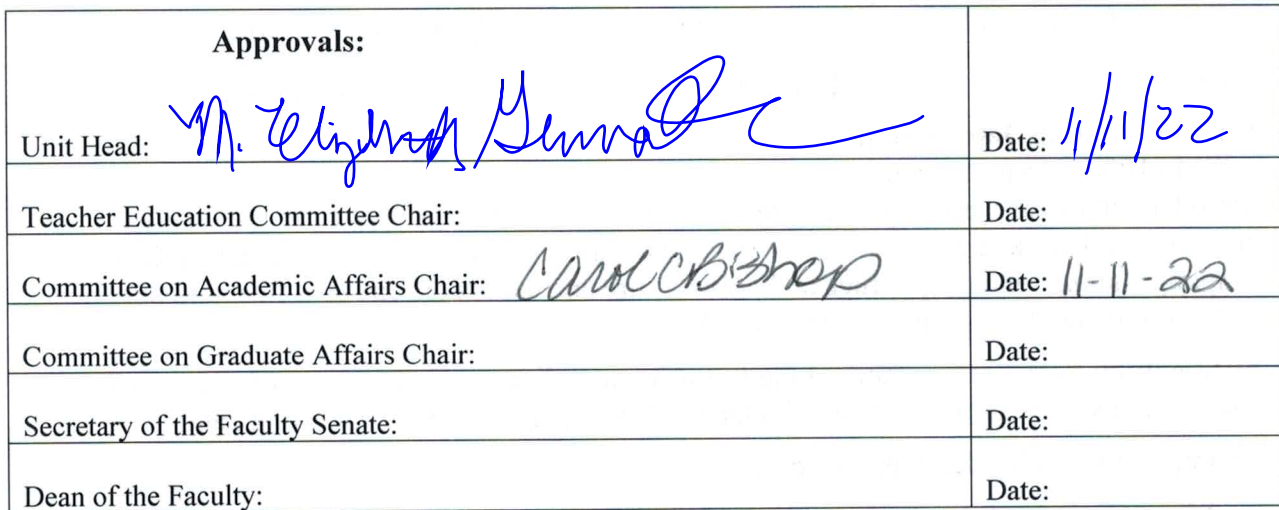 Approvals:
Unit Head: M. Elizabeth Date: 11/11/22
Teacher Education Committee Chair: Date:
Committee on Academic Affairs Chair: Carol C Bishop Date: 11-11-22
Committee on Graduate Affairs Chair: Date:
Secretary of the Faculty Senate: Date:
Dean of the Faculty: Date: